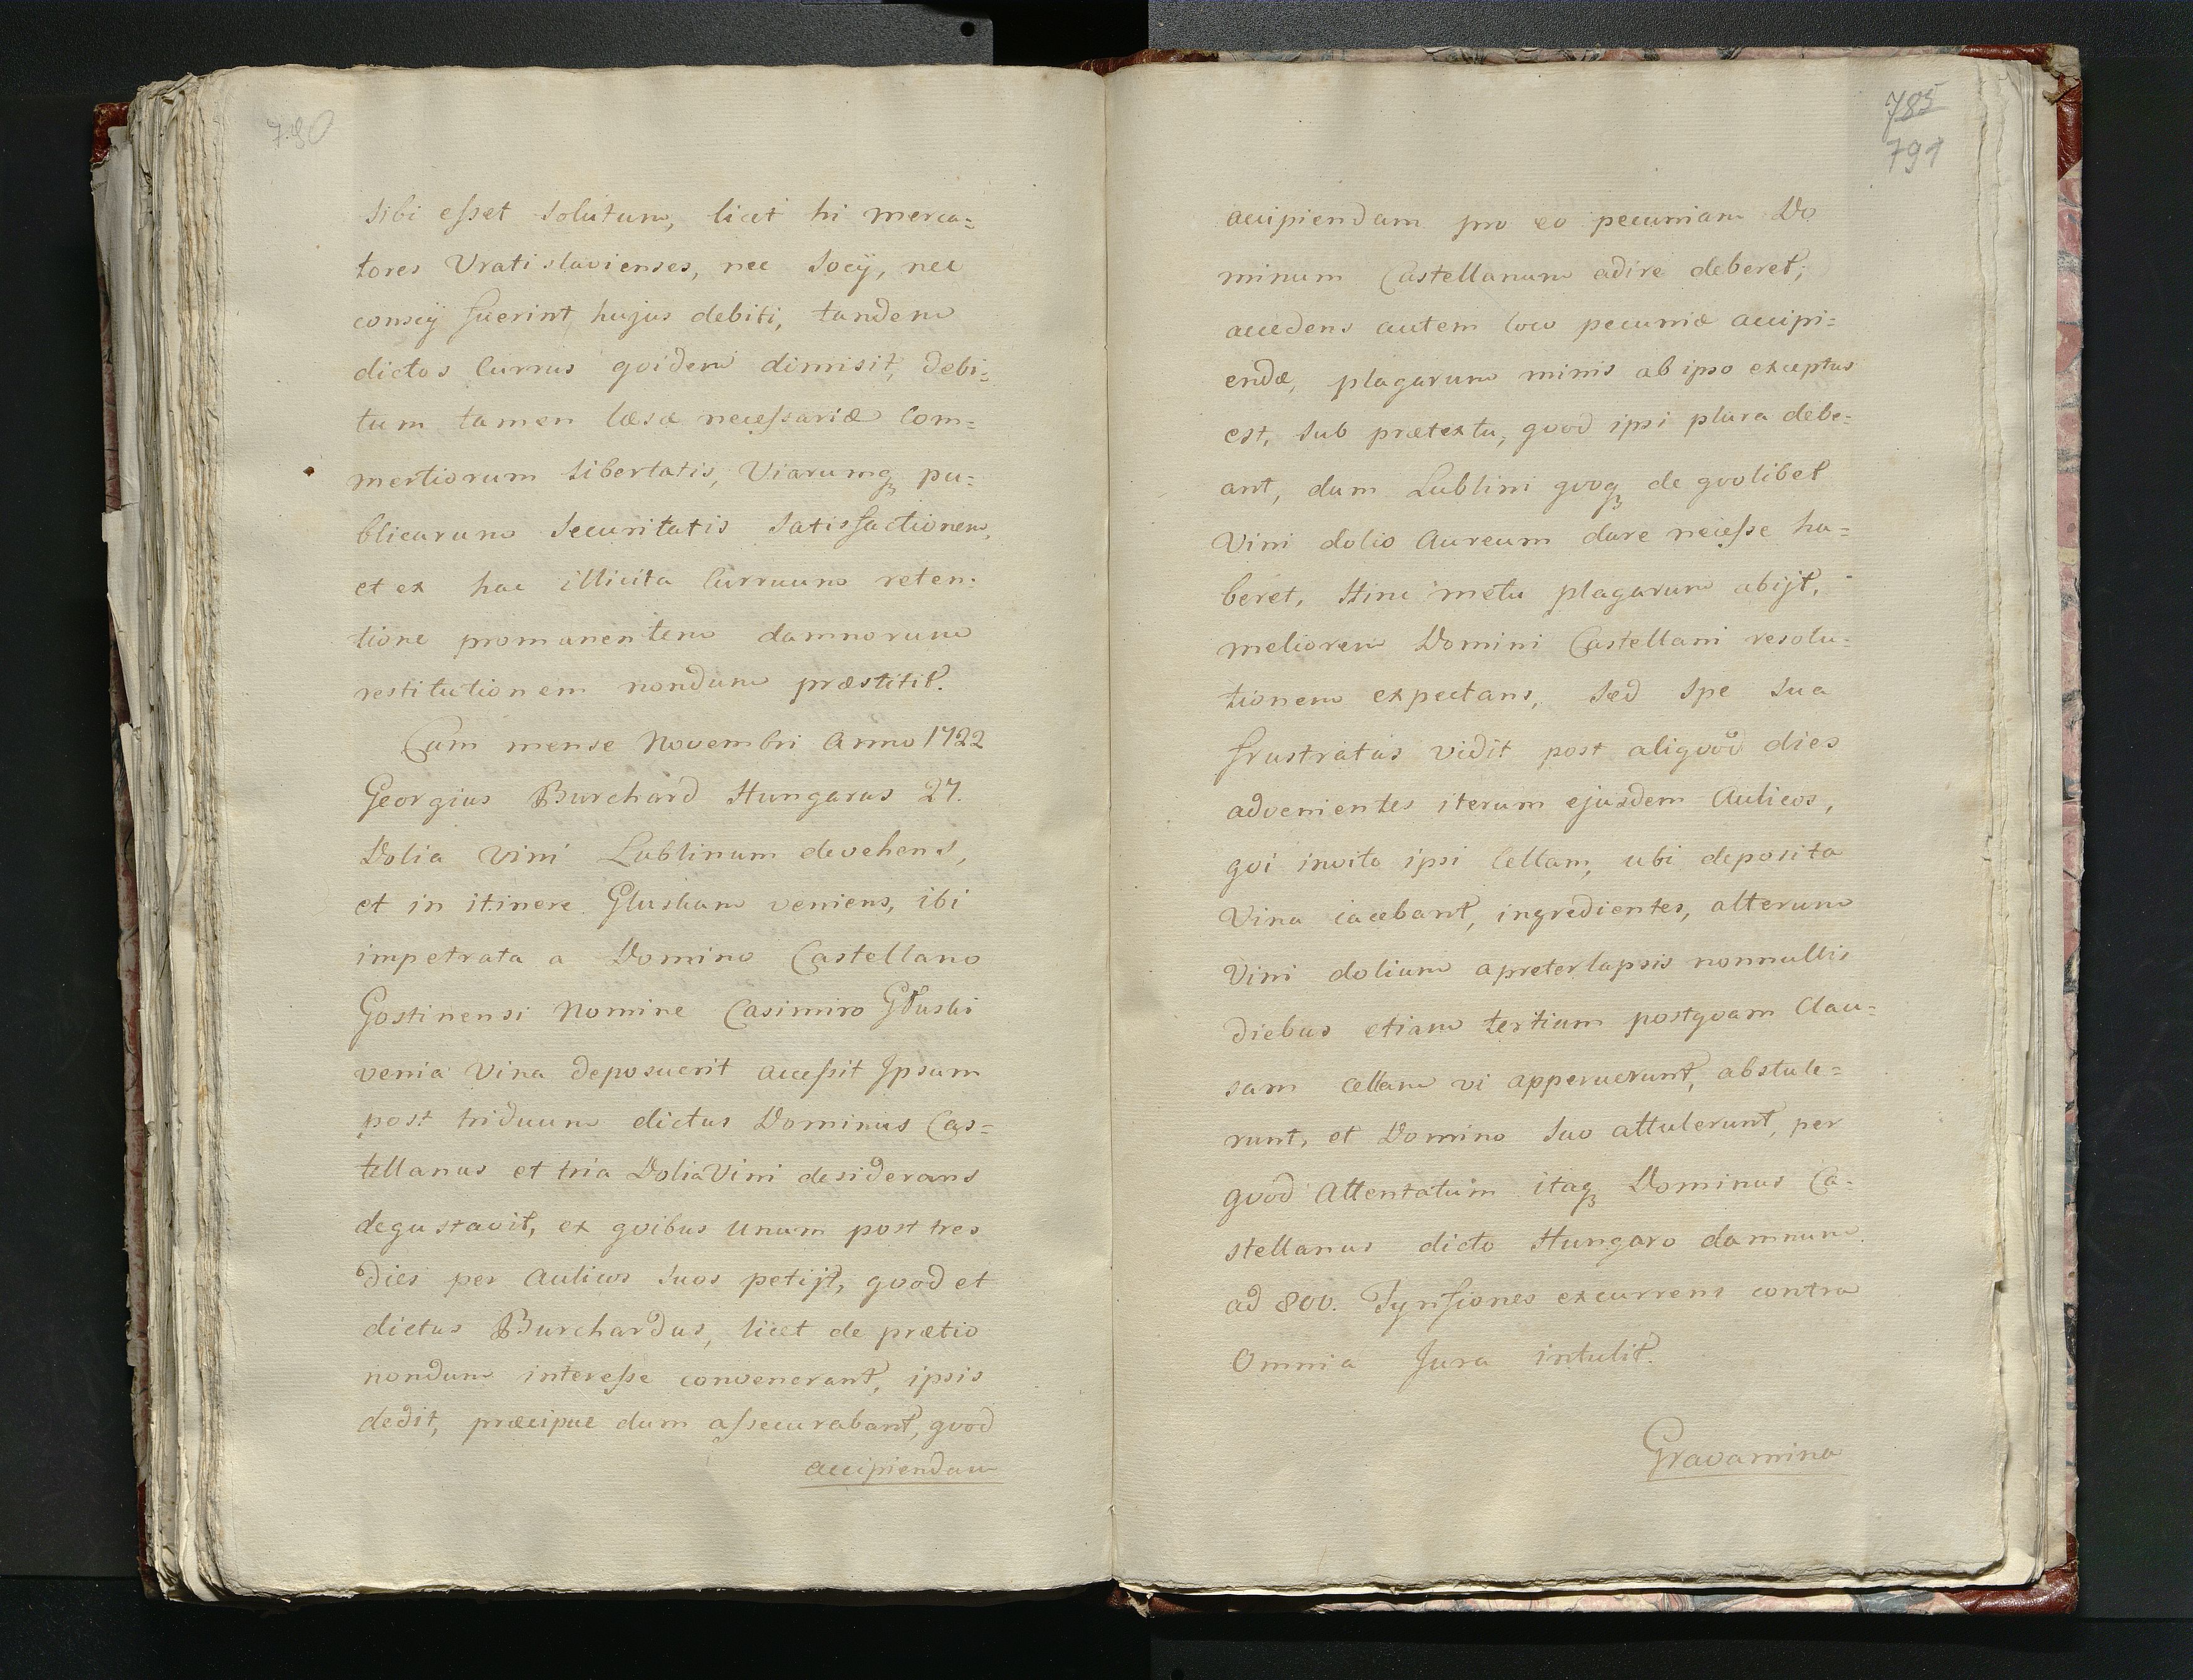 790
sibi esset solutum, licet hi merca=
tores Vratislavienses, nec Socÿ, nec
conscÿ fuerint hujus debiti, tandem
dictos Currus qvidem dimisit, debi=
tum tamen læsæ necessariæ Com=
mertiorum libertatis, Viarumq3 pu=
blicarum Securitatis Satisfactionem,
et ex hac illicita Curruum reten=
tione promanentem damnorum
restitutionem nondum præstitit.
Cum mense Novembri Anno 1722
Georgius Burchard Hungarus 27.
Dolia Vini Lublinum devehens,
et in itinere Gluskam veniens, ibi
impetrata a Domino Castellano
Gostinensi Nomine Casimiro Głuski
venia Vina deposuerit accessit Ipsum
post triduum dictus Dominus Cas=
tellanus et tria Dolia Vini desiderans
degustavit, ex qvibus Unum post tres
dies per Aulicos Suos petijt, qvod et
dictus Burchardus, licet de prætio
nondum interesse convenerant, ipsis
dedit, præcipue dum assecurabant, qvod
accipiendam
785
791
accipiendam pro eo pecuniam Do
minum Castellanum adire deberet;
accedens autem loco pecuniæ accipi=
endæ, plagarum minis ab ipso exceptus
est, Sub prætextu, qvod ipsi plura debe=
ant, dum Lublini qvoq3 de qvolibet
Vini dolio Aureum dare necesse ha=
beret, Hinc metu plagarum abijt,
meliorem Domini Castellani resolu=
tionem expectans, Sed Spe Sua
frustratus vidit post aliqvod dies
advenientes iterum ejusdem Aulicos,
qvi invito ipsi Cellam, ubi deposita
Vina iacebant, ingredientes, alterum
Vini dolium apreterlapsis nonnullis
diebus etiam tertium postqvam Clau=
sam cellam vi apperuerunt, abstule=
runt, et Domino Suo attulerunt, per
qvod Attentatum itaq3 Dominus Ca=
stellanus dicto Hungaro damnum
ad 800. Tynfiones excurrens contra
Omnia Jura intulit.
Gravamina